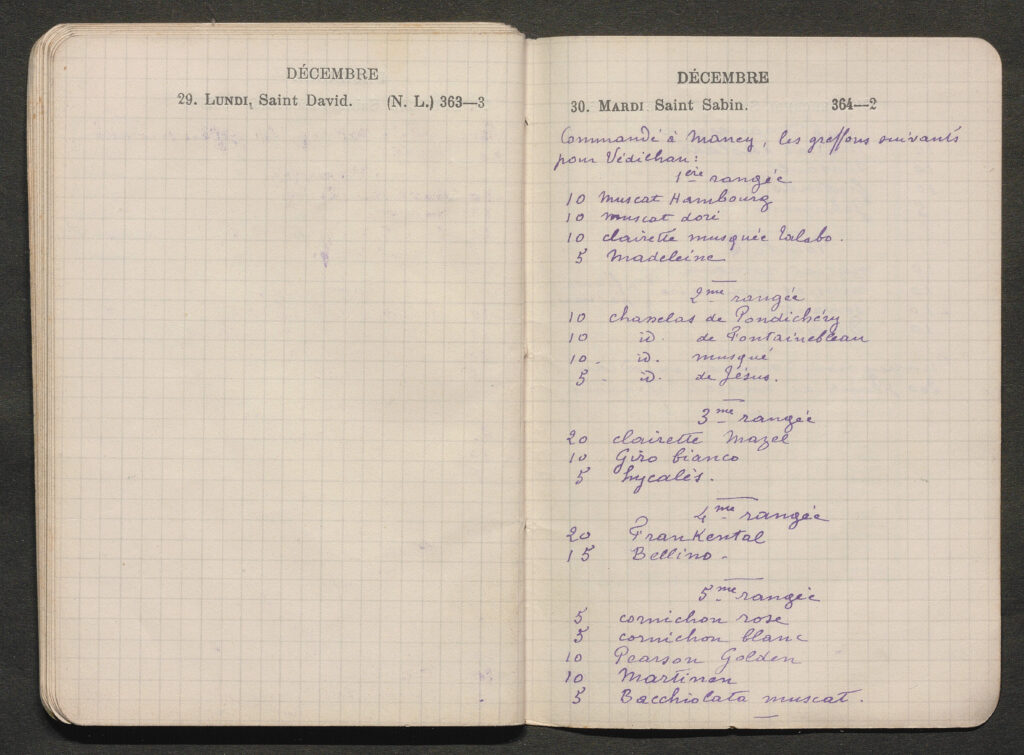 DÉCEMBRE
29. LUNDI, Saint David. (N. L.) 363—3
DÉCEMBRE
30. MARDI Saint Sabin. 364—2
Commandé à Marcy, les greffons suivants
pour Védilhan:
1ère rangée
10 muscat Hambourg
10 muscat doré
10 clairette musquée Talabo.
5 Madeleine
2me rangée
10 chasselas de Pondichéry
10 id. de Fontainebleau
10 - id. musqué
5 - id. de Jésus.
3me rangée
20 clairette Mazel
10 Giro bianco
5 Lycalès.
4me rangée
20 FranKental
15 Bellino -
5me rangée
5 cornichon rose
5 cornichon blanc
10 Pearson Golden
10 Martinen
5 Bacchiolata muscat.